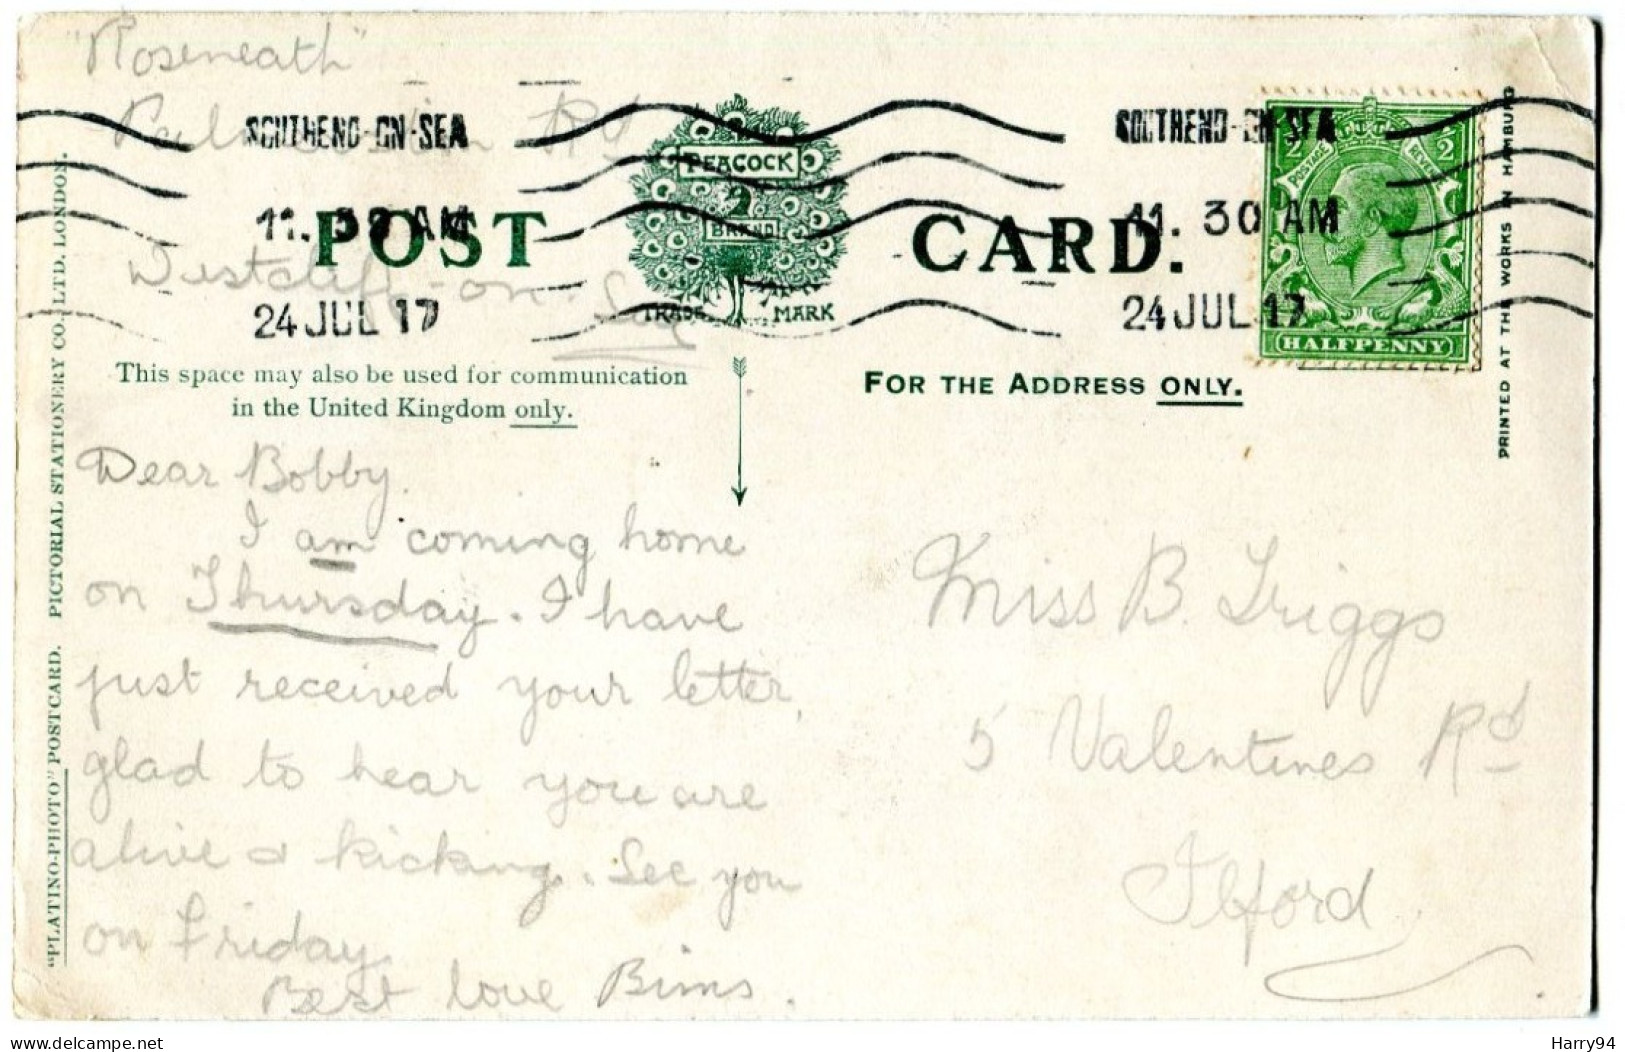 "Roseneath"
Palmerston Rd
Westcliff-on-Sea
SOUTHEND-ON-SEA
11. 30 AM
24 JUL 17
SOUTHEND-ON-SEA
11. 30 AM
24 JUL 17
POST CARD.
PEACOCK
BRAND
TRADE MARK
1/2 1/2
POSTAGE REVENUE
HALFPENNY
This space may also be used for communication
in the United Kingdom only.
FOR THE ADDRESS ONLY.
Dear Bobby.
I am coming home
on Thursday. I have
just received your letter,
glad to hear you are
alive & kicking. See you
on Friday.
Best love Bims.
Miss B. Triggs
5 Valentines Rd
Ilford
"PLATINO-PHOTO" POSTCARD. PICTORIAL STATIONERY CO., LTD. LONDON.
PRINTED AT THE WORKS IN HAMBURG
delcampe.net
Harry94